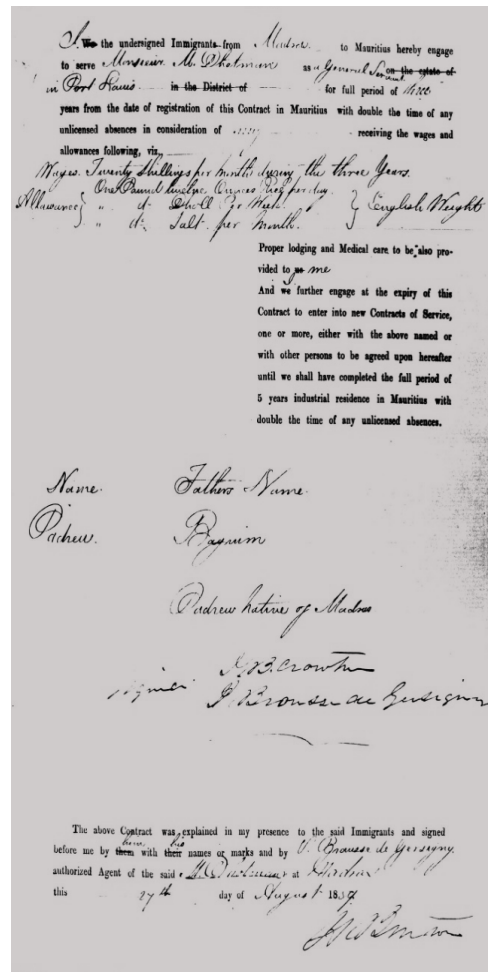 I. We the undersigned Immigrants from Madras to Mauritius hereby engage
to serve Monsieur M. Dholman as a General Servant on the estate of
in Port Louis in the District of for full period of three
years from the date of registration of this Contract in Mauritius with double the time of any
unlicensed absences in consideration of receiving the wages and
allowances following, viz.,
Wages. Twenty Shillings per month during the three Years.
One Pound twelve Ounces Rice per day.
Allowance " d: Dholl Per Week. } English Weight
" d: Salt per Month.
Proper lodging and Medical care to be also pro-
vided to us me
And we further engage at the expiry of this
Contract to enter into new Contracts of Service,
one or more, either with the above named or
with other persons to be agreed upon hereafter
until we shall have completed the full period of
5 years industrial residence in Mauritius with
double the time of any unlicensed absences.
Name. Fathers Name.
Padrew.
Padrew native of Madras
Crowther
Brousse de Gersigny
The above Contract was explained in my presence to the said Immigrants and signed
him his
before me by them with their names or marks and by V. Brousse de Gersigny
authorized Agent of the said at Madras
this 27th day of August 18